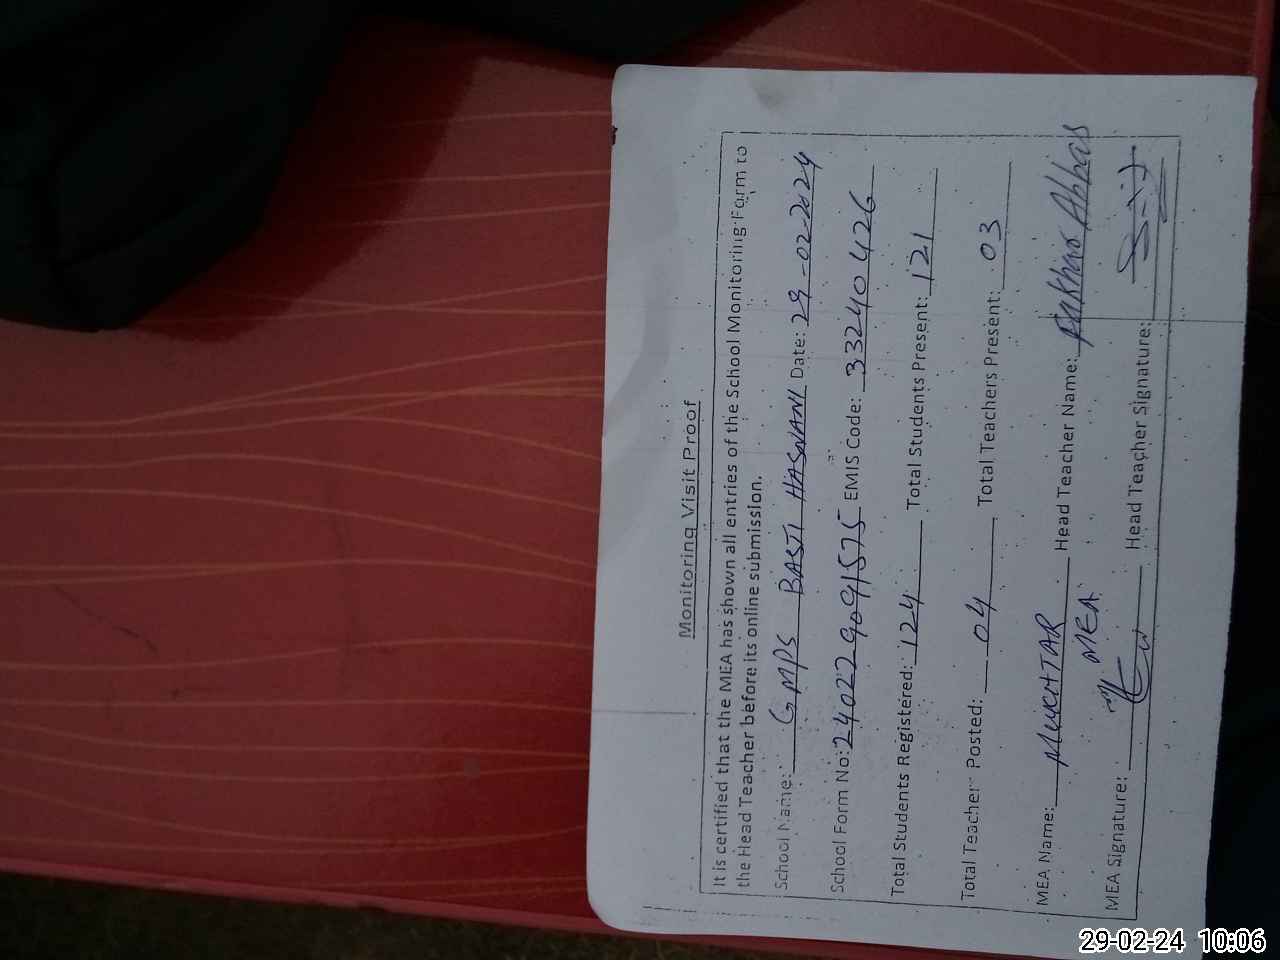 Monitoring Visit Proof
It is certified that the MEA has shown all entries of the School Monitoring Form to
the Head Teacher before its online submission.
School Name: GMPS BASTI HASNANI Date: 29-02-2024
School Form No: 240229091575 EMIS Code: 33240426
Total Students Registered: 124 Total Students Present: 121
Total Teacher Posted: 04 Total Teachers Present: 03
MEA Name: MUKHTAR Head Teacher Name: Fakhar Abbas
MEA
MEA Signature: Head Teacher Signature:
29-02-24 10:06